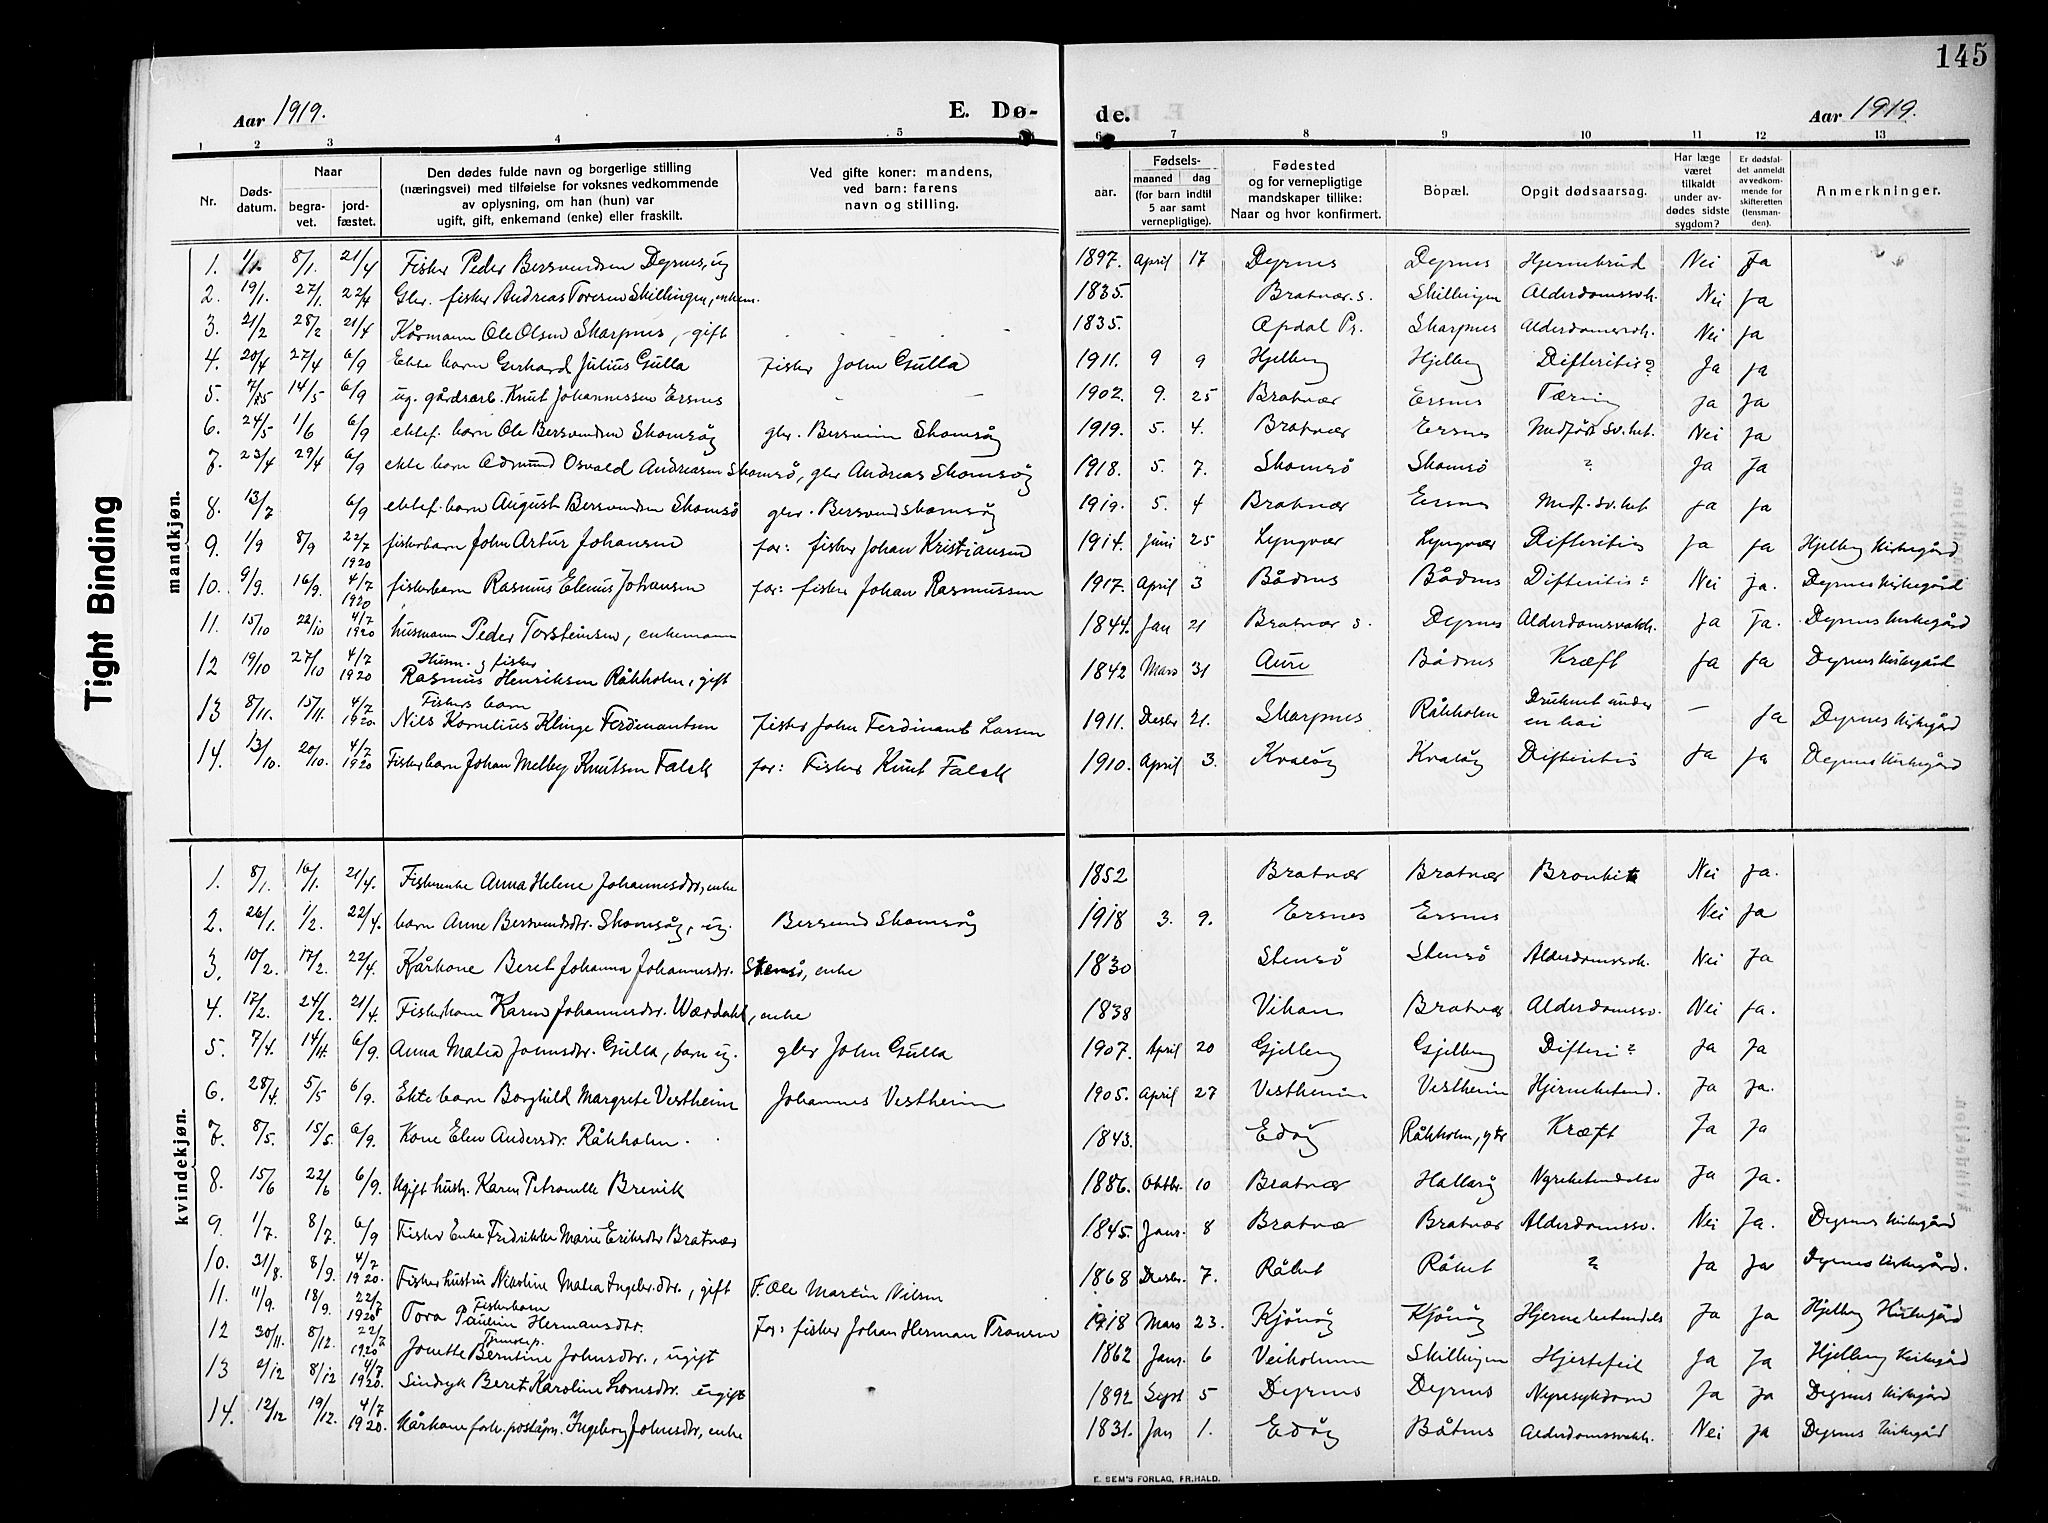 145
Aar 1919. E. Dø- de. Aar 1919.
1 2 3 4 5 6 7 8 9 10 11 12 13
Nr. Døds-datum. Naar begra-vet. jord-fæstet. Den dødes fulde navn og borgerlige stilling (næringsvei) med tilføielse for voksnes vedkommende av oplysning, om han (hun) var ugift, gift, enkemand (enke) eller fraskilt. Ved gifte koner: mandens, ved barn: farens navn og stilling. aar. Fødsels- maaned dag (for barn indtil 5 aar samt vernepligtige). Fødested og for vernepligtige mandskaper tillike: Naar og hvor konfirmert. Bopæl. Opgit dødsaarsag. Har læge været tilkaldt under av-dødes sidste sygdom? Er dødsfal-det anmeldt av vedkom-mende for skifteretten (lensman-den). Anmerkninger.
mandkjøn.
1. 1/1. 8/1. 21/4 Fisker Peder Bersvendsen Dyrnes, ug 1897. April 17 Dyrnes Dyrnes Hjernebrud Nei Ja
2. 19/1. 27/1. 22/4 Gbr. fisker Andreas Toresen Skillingen, enkem. 1835. Bratvær s. Skillingen Alderdomssvk. Nei Ja
3. 21/2 28/2 21/4 Kårmann Ole Olsen Skarpnes, gift 1835. Opdal Pr. Skarpnes Alderdomssvk. Nei Ja
4. 20/4 27/4 6/9 Ekte barn Gerhard Julius Gulla Fisker John Gulla 1911. 9 9 Hjelben Hjelben Difteritis? Ja Ja
5. 7/5 14/5 6/9 ug. gårdsarb. Knut Johannessen Ersnes 1902. 9. 25 Bratvær Ersnes Tæring Ja Ja
6. 24/5 1/6 6/9 ektef. barn Ole Bersvendsen Skomsøy gbr. Skomsøy 1919. 5. 4. Bratvær Ersnes Medfødt Sv.het. Nei Ja
7. 23/4 29/4 6/9 ekte barn Edmund Osvald Andreasen Skomsø, gbr Andreas Skomsøy 1918. 5. 7. Skomsø Skomsø ? Ja Ja
8. 13/7 6/9 ektef. barn August Bersvendsen Skomsø gbr. Bersvend Skomsøy 1919. 5. 4 Bratvær Ersnes Medf. sv.het Ja Ja
9. 1/9 8/9 22/7 1920 fiskerbarn John Artur Johansen far: fisker Johan Kristiansen 1914. Juni 25 Lyngvær Lyngvær Difteritis Ja Ja Hjelben Kirkegård
10. 9/9. 16/9. 4/7 1920 fiskerbarn Rasmus Elenus Johansen far: fisker Johan Rasmussen 1917. April 3 Bådnes Bådnes Difteritis? Nei Ja. Dyrnes Kirkegård
11. 15/10 22/10 4/7 1920 husmann Peder Torsteinsen, enkemann 1844. Jan 21 Bratvær s. Dyrnes Alderdomssvakh. Ja Ja. Dyrnes Kirkegård
12 19/10 27/10 4/7 1920 Husm. og fisker Rasmus Henriksen Råkholm, gift 1842 Mars 31 Aure Bådnes Kræft Ja Ja Dyrnes Kirkegård
13 8/11. 15/11. 4/7 1920. Fiskers barn Nils Kornelius Klinge Ferdinantsen Fisker John Ferdinant Larsen 1911. Desbr 21. Skarpnes Råkholm Druknet under en kai — Ja Dyrnes Kirkegård
14. 13/10. 20/10. 4/7 1920 Fiskerbarn Johan Melby Knutsen Falck far: Fisker Knut Falck 1910. April 3. Kvaløy Kvaløy Difteritis Ja Ja Dyrnes Kirkegård
kvindekjøn.
1. 8/1. 16/1. 21/4. Fiskerenke Anna Helene Johannesdtr, enke 1852 Bratvær Bratvær Bronkit Nei Ja.
2. 26/1. 1/2. 22/4. barn Anne Bersvendsdtr. Skomsøy, ug. Bersvend Skomsøy 1918 3. 9. Ersnes Ersnes Nei Ja
3. 10/2. 17/2. 22/4. Kårkone Beret Johanna Johannesdtr. Stensø, enke 1830 Stensø Stensø Alderdomssvk. Nei Ja
4. 17/2. 24/2. 21/4. Fiskerkone Karen Johannesdtr. Wærdahl, enke 1838 Bratvær Alderdomssv. Nei Ja.
5. 7/4. 14/4. 6/9. Anna Malea Johnsdtr. Gulla, barn ug. gbr John Gulla 1907. April 20 Gjelben Gjelben Difteri? Ja Ja
6. 28/4. 5/5 6/9. Ekte barn Borghild Margrete Vestheim Johannes Vestheim 1905. April 27 Vestheim Vestheim Hjernebetend. Ja Ja.
7. 8/5. 15/5. 6/9. Kone Elen Andersdtr. Råkholm. 1843. Edøy Råkholm, ytr Kræft Ja Ja
8. 15/6 22/6 6/9. Ugift hush. Karen Petronelle Brevik 1886. Oktbr. 10 Bratvær Hallarøy Nyrebetendelse Ja Ja.
9. 1/7. 8/7. 6/9 Fisker Enke Fredrikke Marie Eriksdtr Bratvær 1845. Janr. 8 Bratvær Bratvær Alderdomssv. Nei Ja. Dyrnes Kirkegård
10. 31/8. 8/9. 4/7 1920. Fisker hustru Nikoline Malea Ingebr.dtr., gift F. Ole Martin Nilsen 1868 Desbr. 7. Råket Råket ? Ja Ja Dyrnes Kirkegård.
11. 11/9. 18/9. 22/7 1920 Fiskerbarn Tora Paulin Hermansdtr. Far: fisker Johan Herman Transen 1918 Mars 23. Kjønøy Kjønøy Hjernebetendels Ja Ja Hjelben Kirkegård
12 30/11. 8/12. 22/7 1920 Jonette Berntine Johnsdtr., ugift 1862 Janr. 6 Veiholmen Skillingen Hjertefeil Ja Ja Hjelben Kirkegård
13 2/12 8/12 4/7 1920. Sindsyk Beret Karoline Larsdtr. ugift 1892 Sept 5 Dyrnes Dyrnes Nyresykdom Ja Ja Dyrnes Kirkegård
14. 12/12 19/12. 4/7 1920. Kårkone forh. poståpn. Ingeborg Johnsdtr, enke 1831. Jan 1. Edøy Båtnes Alderdomssvakh. Nei Ja Dyrnes Kirkegård
E. SEM'S FORLAG, FR.HALD.
Tight Binding